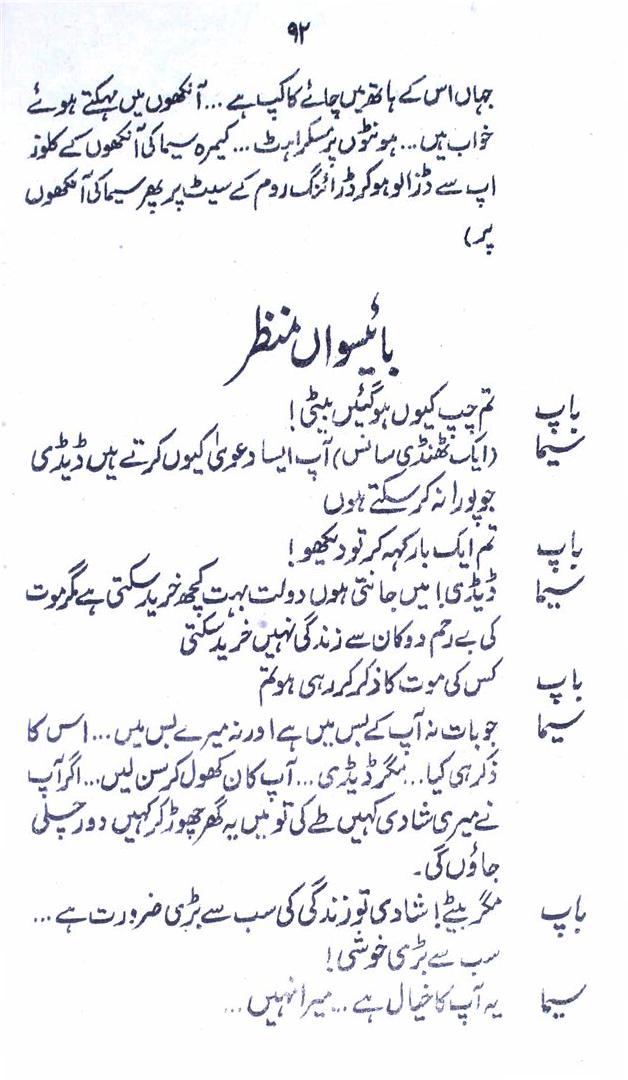 ۹۲
جہاں اس کے ہاتھ میں چائے کا کپ ہے ... آنکھوں میں مہکتے ہوئے
خواب ہیں ... ہونٹوں پر مسکراہٹ ... کیمرہ سیما کی آنکھوں کے کلوز
اپ سے ڈزالو ہو کر ڈرائنگ روم کے سیٹ پر پھر سیما کی آنکھوں
پر)
بائیسواں منظر
باپ تم چپ کیوں ہو گئیں بیٹی!
سیما (ایک ٹھنڈی سانس) آپ ایسا دعویٰ کیوں کرتے ہیں ڈیڈی
جو پورا نہ کر سکتے ہوں
باپ تم ایک بار کہہ کر تو دیکھو!
سیما ڈیڈی! میں جانتی ہوں دولت بہت کچھ خرید سکتی ہے مگر موت
کی بے رحم دوکان سے زندگی نہیں خرید سکتی
باپ کس کی موت کا ذکر کر رہی ہو تم
سیما جو بات نہ آپ کے بس میں ہے اور نہ میرے بس میں ... اس کا
ذکر ہی کیا ... مگر ڈیڈی ... آپ کان کھول کر سن لیں ... اگر آپ
نے میری شادی کہیں طے کی تو میں یہ گھر چھوڑ کر کہیں دور چلی
جاؤں گی۔
باپ مگر بیٹے! شادی تو زندگی کی سب سے بڑی ضرورت ہے ...
سب سے بڑی خوشی!
سیما یہ آپ کا خیال ہے ... میرا نہیں ...